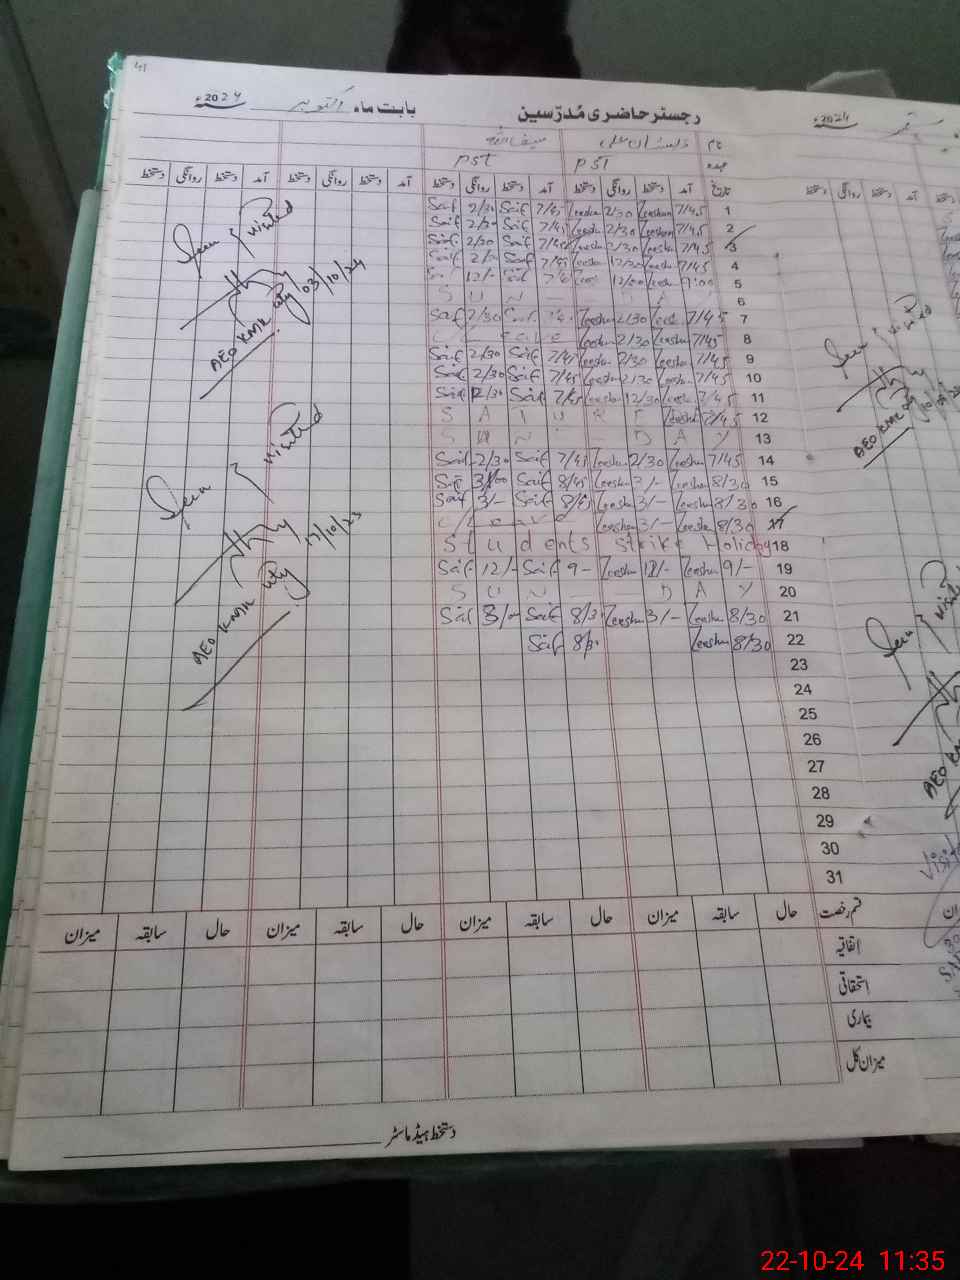 41
رجسٹر حاضری مُدرّسین بابت ماہ اکتوبر 2024ء
نام ذیشان علی سیف اللہ
عہدہ PST PST
تاریخ آمد دستخط روانگی دستخط آمد دستخط روانگی دستخط آمد دستخط روانگی دستخط آمد دستخط روانگی دستخط
Saif 2/30 Saif 7/45 Zeeshan 2/30 Zeeshan 7/45 1
Saif 2/30 Saif 7/45 Zeesha 2/30 Zeeshan 7/45 2
Saif 2/30 Saif 7/45 Zeesha 2/30 Zeesh 7/45 3
Saif Saif 7/45 Zeesha 12/30 Zeesha 7/45 4
12/- Saif 12/00 9:00 5
S U N - - D A Y 6
Saif 2/30 Zeeshn 2/30 Zeesh 7/45 7
C/Leave Zeeshn 2/30 Zeeshn 7/45 8
Saif 2/30 Saif 7/45 Zeeshn 2/30 Zeeshn 7/45 9
Saif 2/30 Saif 7/45 Zeeshn 2/30 Zeeshn 7/45 10
Saif 12/30 Saif 7/45 Zeeshn 12/30 Zeeshn 7/45 11
S A T U R Zeeshn 7/45 12
S U N - - D A Y 13
Saif 2/30 Saif 7/45 Zeeshn 2/30 Zeeshn 7/45 14
Saif 3/00 Saif 8/45 Zeeshn 3/- Zeeshn 8/30 15
Saif 3/- Saif Zeeshn 3/- Zeeshn 8/30 16
C/Leave Zeeshn 3/- Zeeshn 8/30 17
Students Strike Holiday 18
Saif 12/- Saif 9- Zeeshn 12/- Zeeshn 9/- 19
S U N - - D A Y 20
Saif 3/- Saif 8/30 Zeeshn 3/- Zeeshn 8/30 21
Saif 8/30 Zeeshn 8/30 22
23
24
25
26
27
28
29
30
31
Seen } Visited
03/10/24
AEO KMK
Seen } Visited
17/10/23
AEO KMK
قسم رخصت حال سابقہ میزان حال سابقہ میزان حال سابقہ میزان حال سابقہ میزان
اتفاقیہ
استحقاقی
بیماری
میزان کل
دستخط ہیڈ ماسٹر
2024ء ستمبر
آمد دستخط روانگی دستخط
Seen } Visited
AEO KMK
Seen } Visited
AEO
Visit
22-10-24 11:35